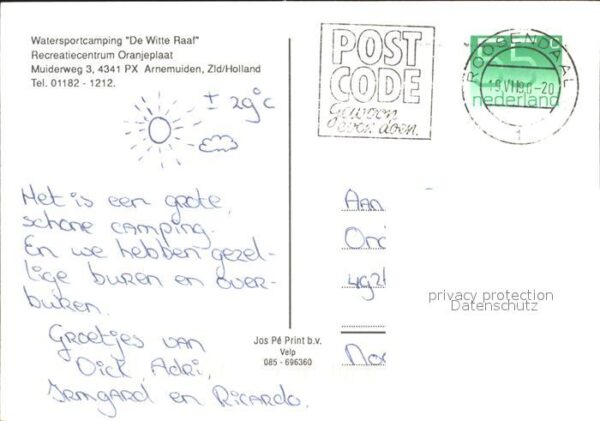 Watersportcamping "De Witte Raaf"
Recreatiecentrum Oranjeplaat
Muiderweg 3, 4341 PX Arnemuiden, Zld/Holland
Tel. 01182 - 1212.
± 29°C
Het is een grote,
schone camping.
En we hebben gezel-
lige buren en over-
buren.
Groetjes van
Dick Adri,
Irmgard en Ricardo.
Jos Pé Print b.v.
Velp
085 - 696360
POST
CODE
gewoon
even doen.
ROOSENDAAL
nederland
1
Aan
privacy protection
Datenschutz